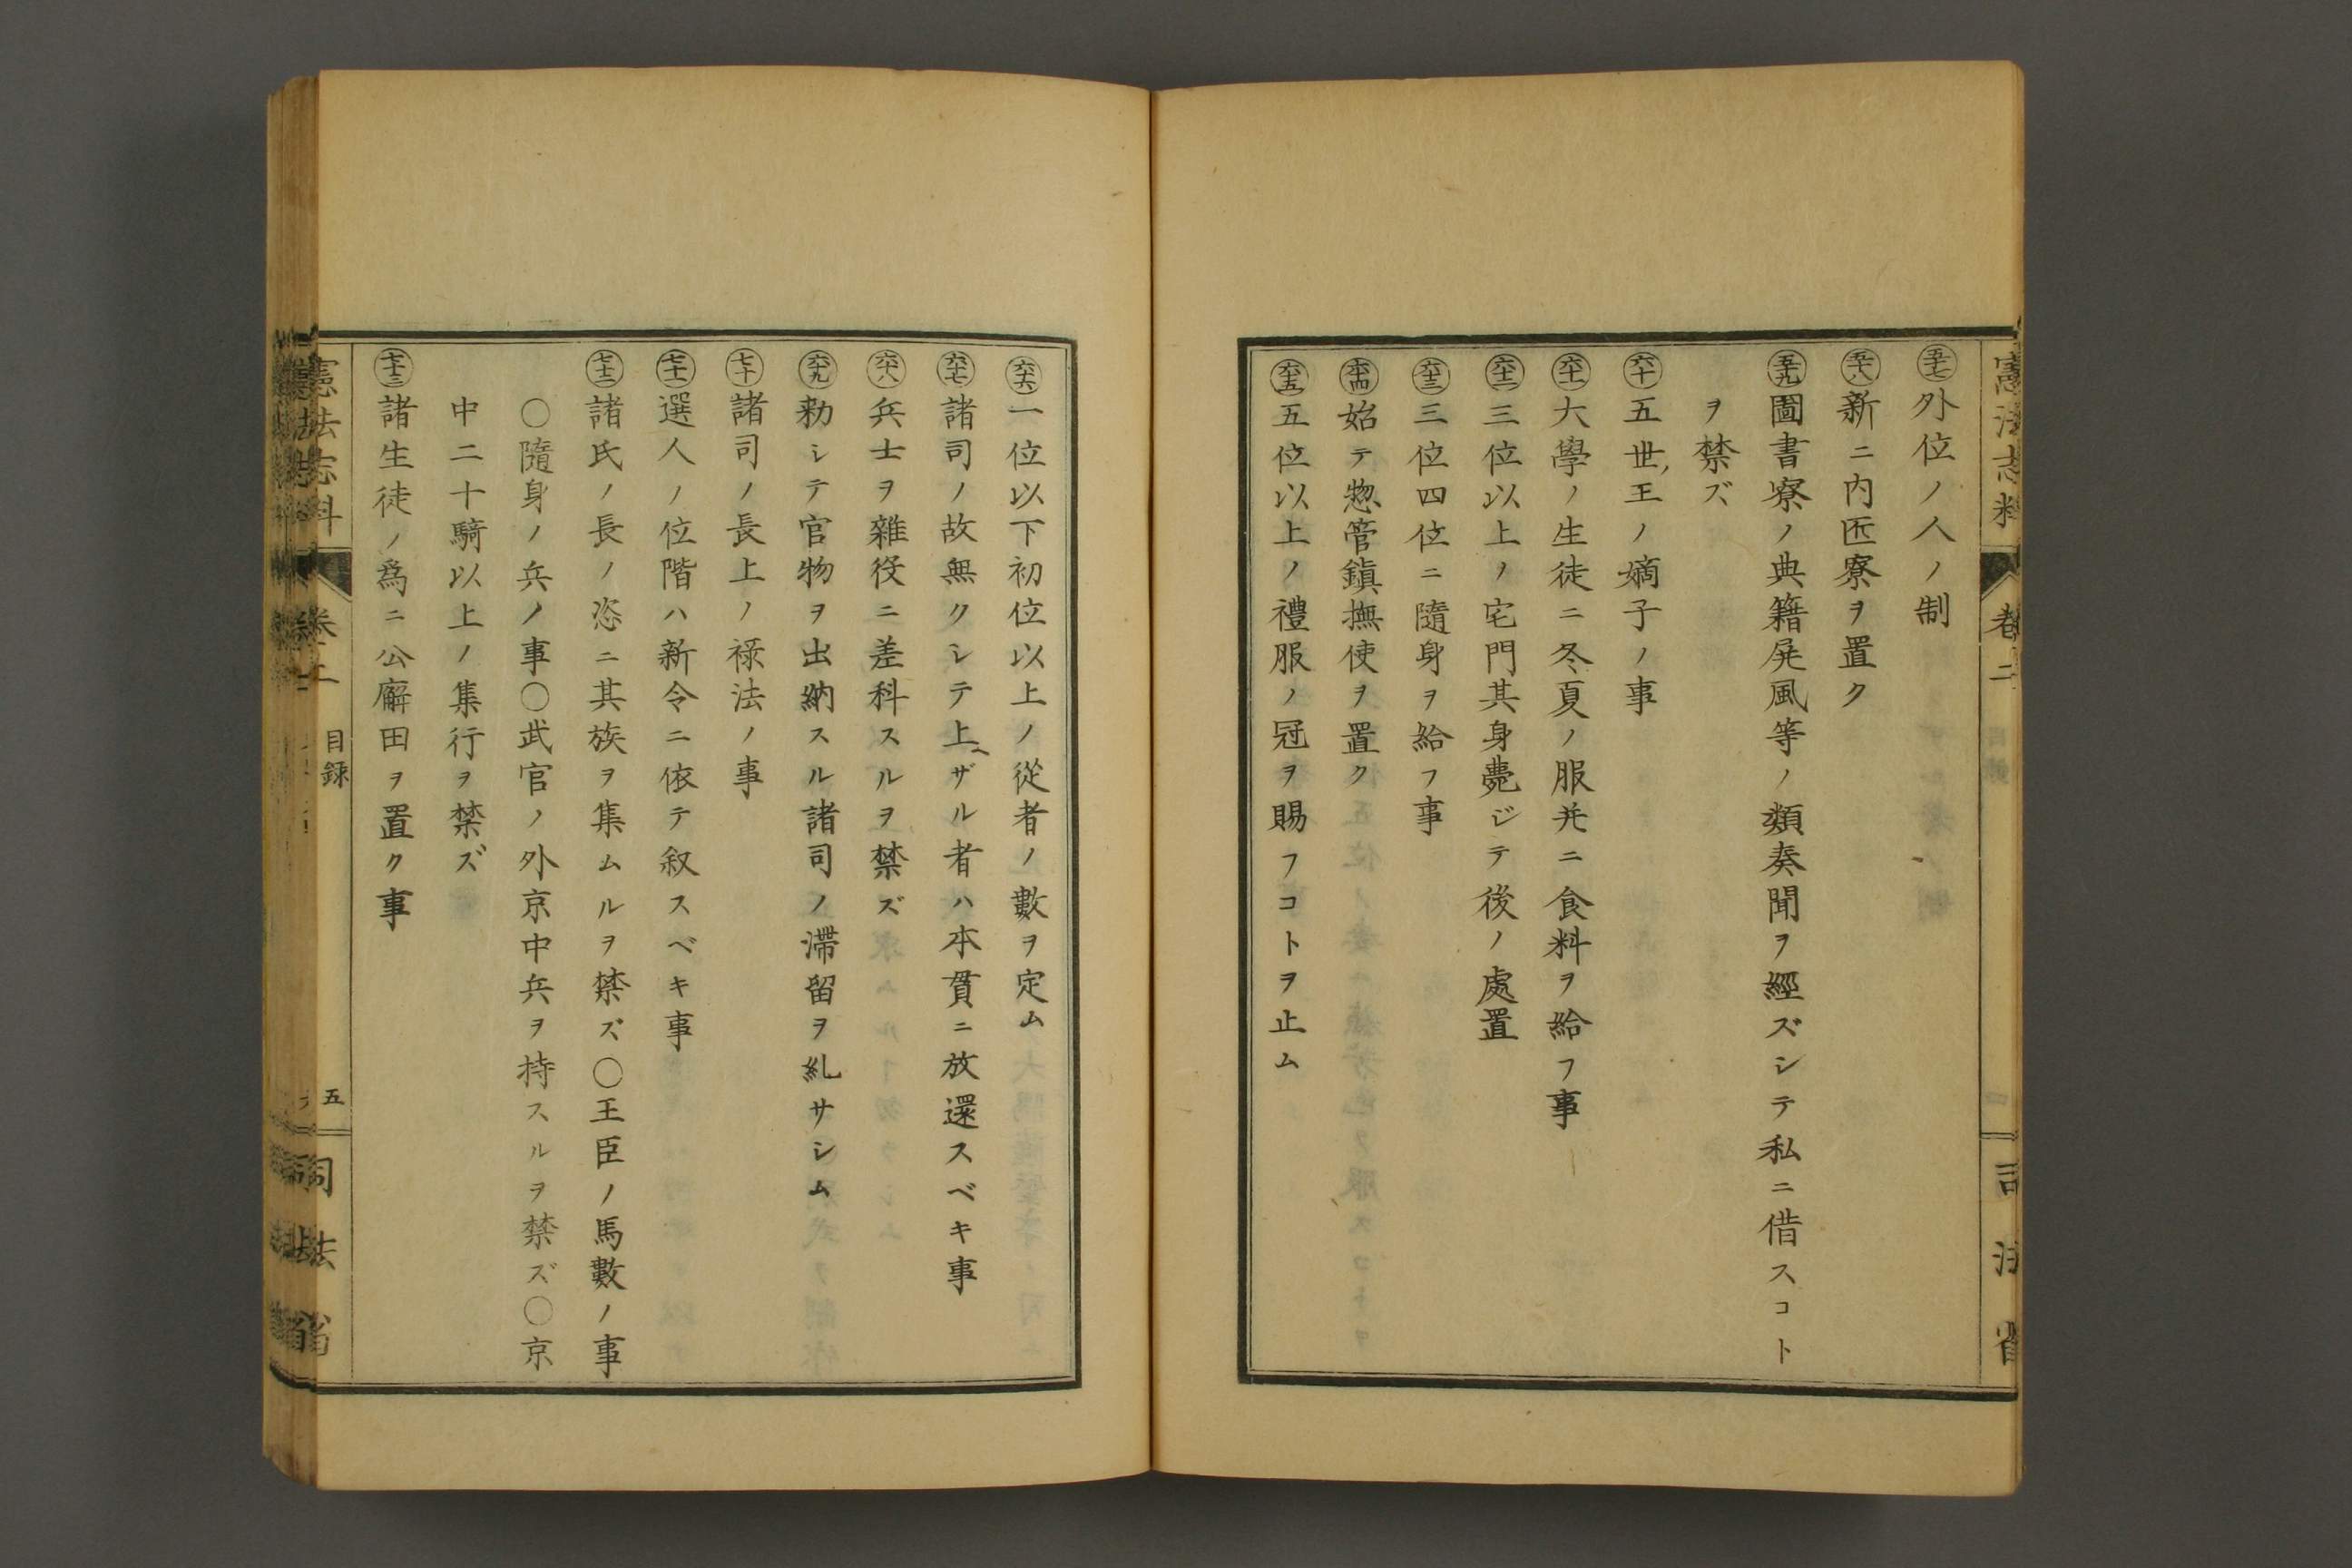 憲法志料
卷二
司法省
五十七 外位ノ人ノ制
五十八 新ニ内匠寮ヲ置ク
五十九 圖書寮ノ典籍屛風等ノ類奏聞ヲ經ズシテ私ニ借スコト
ヲ禁ズ
六十 五世王ノ嫡子ノ事
六十一 大學ノ生徒ニ冬夏ノ服幷ニ食料ヲ給フ事
六十二 三位以上ノ宅門其身薨ジテ後ノ處置
六十三 三位四位ニ隨身ヲ給フ事
六十四 始テ惣管鎭撫使ヲ置ク
六十五 五位以上ノ禮服ノ冠ヲ賜フコトヲ止ム
六十六 一位以下初位以上ノ從者ノ數ヲ定ム
六十七 諸司ノ故無クシテ上ヘザル者ハ本貫ニ放還スベキ事
六十八 兵士ヲ雜役ニ差科スルヲ禁ズ
六十九 勅シテ官物ヲ出納スル諸司ノ滯留ヲ糺サシム
七十 諸司ノ長上ノ祿法ノ事
七十一 選人ノ位階ハ新令ニ依テ叙スベキ事
七十二 諸氏ノ長ノ恣ニ其族ヲ集ムルヲ禁ズ〇王臣ノ馬數ノ事
〇隨身ノ兵ノ事〇武官ノ外京中兵ヲ持スルヲ禁ズ〇京
中二十騎以上ノ集行ヲ禁ズ
七十三 諸生徒ノ爲ニ公廨田ヲ置ク事
憲法志料
卷二
目録
五
司法省